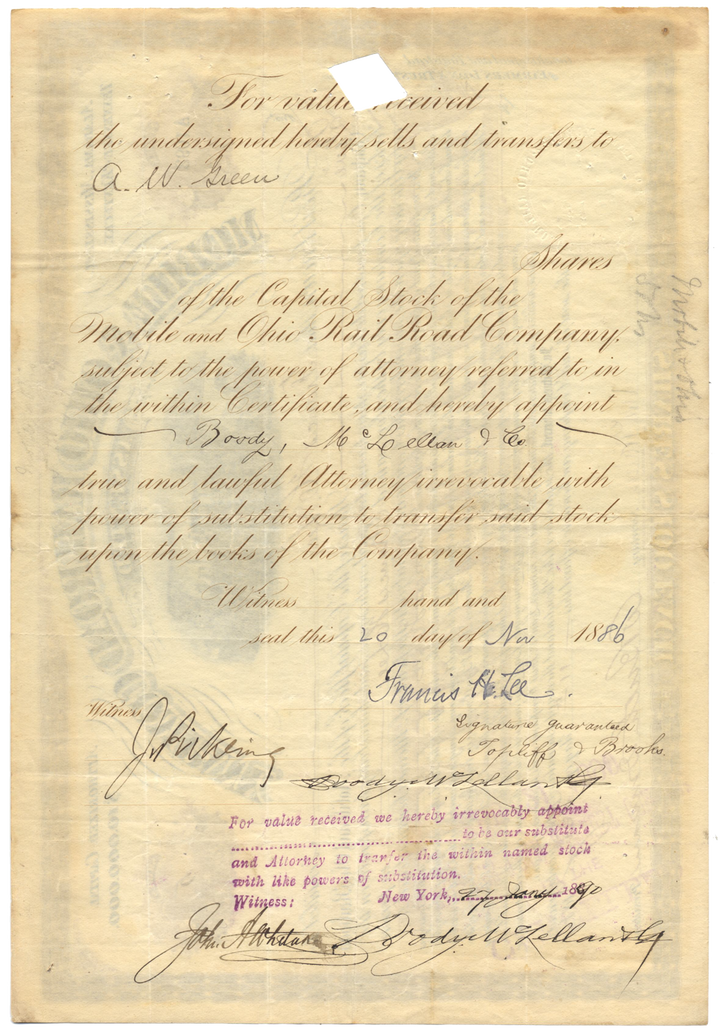 For value received
the undersigned hereby sells and transfers to
A. W. Green
Shares
of the Capital Stock of the
Mobile and Ohio Rail Road Company,
subject to the power of attorney referred to in
the within Certificate, and hereby appoint
Boody, McLellan & Co
true and lawful Attorney irrevocable with
power of substitution to transfer said stock
upon the books of the Company.
Witness hand and
seal this 20 day of Nov 1886
Francis H. Lee.
Witness
J. Pickering
Signature guaranteed
Topliff & Brooks.
Boody McLellan & Co
For value received we hereby irrevocably appoint
to be our substitute
and Attorney to tranfer the within named stock
with like powers of substitution.
Witness: New York, 27 Jany 1890
John A Whitaker Boody McLellan & Co